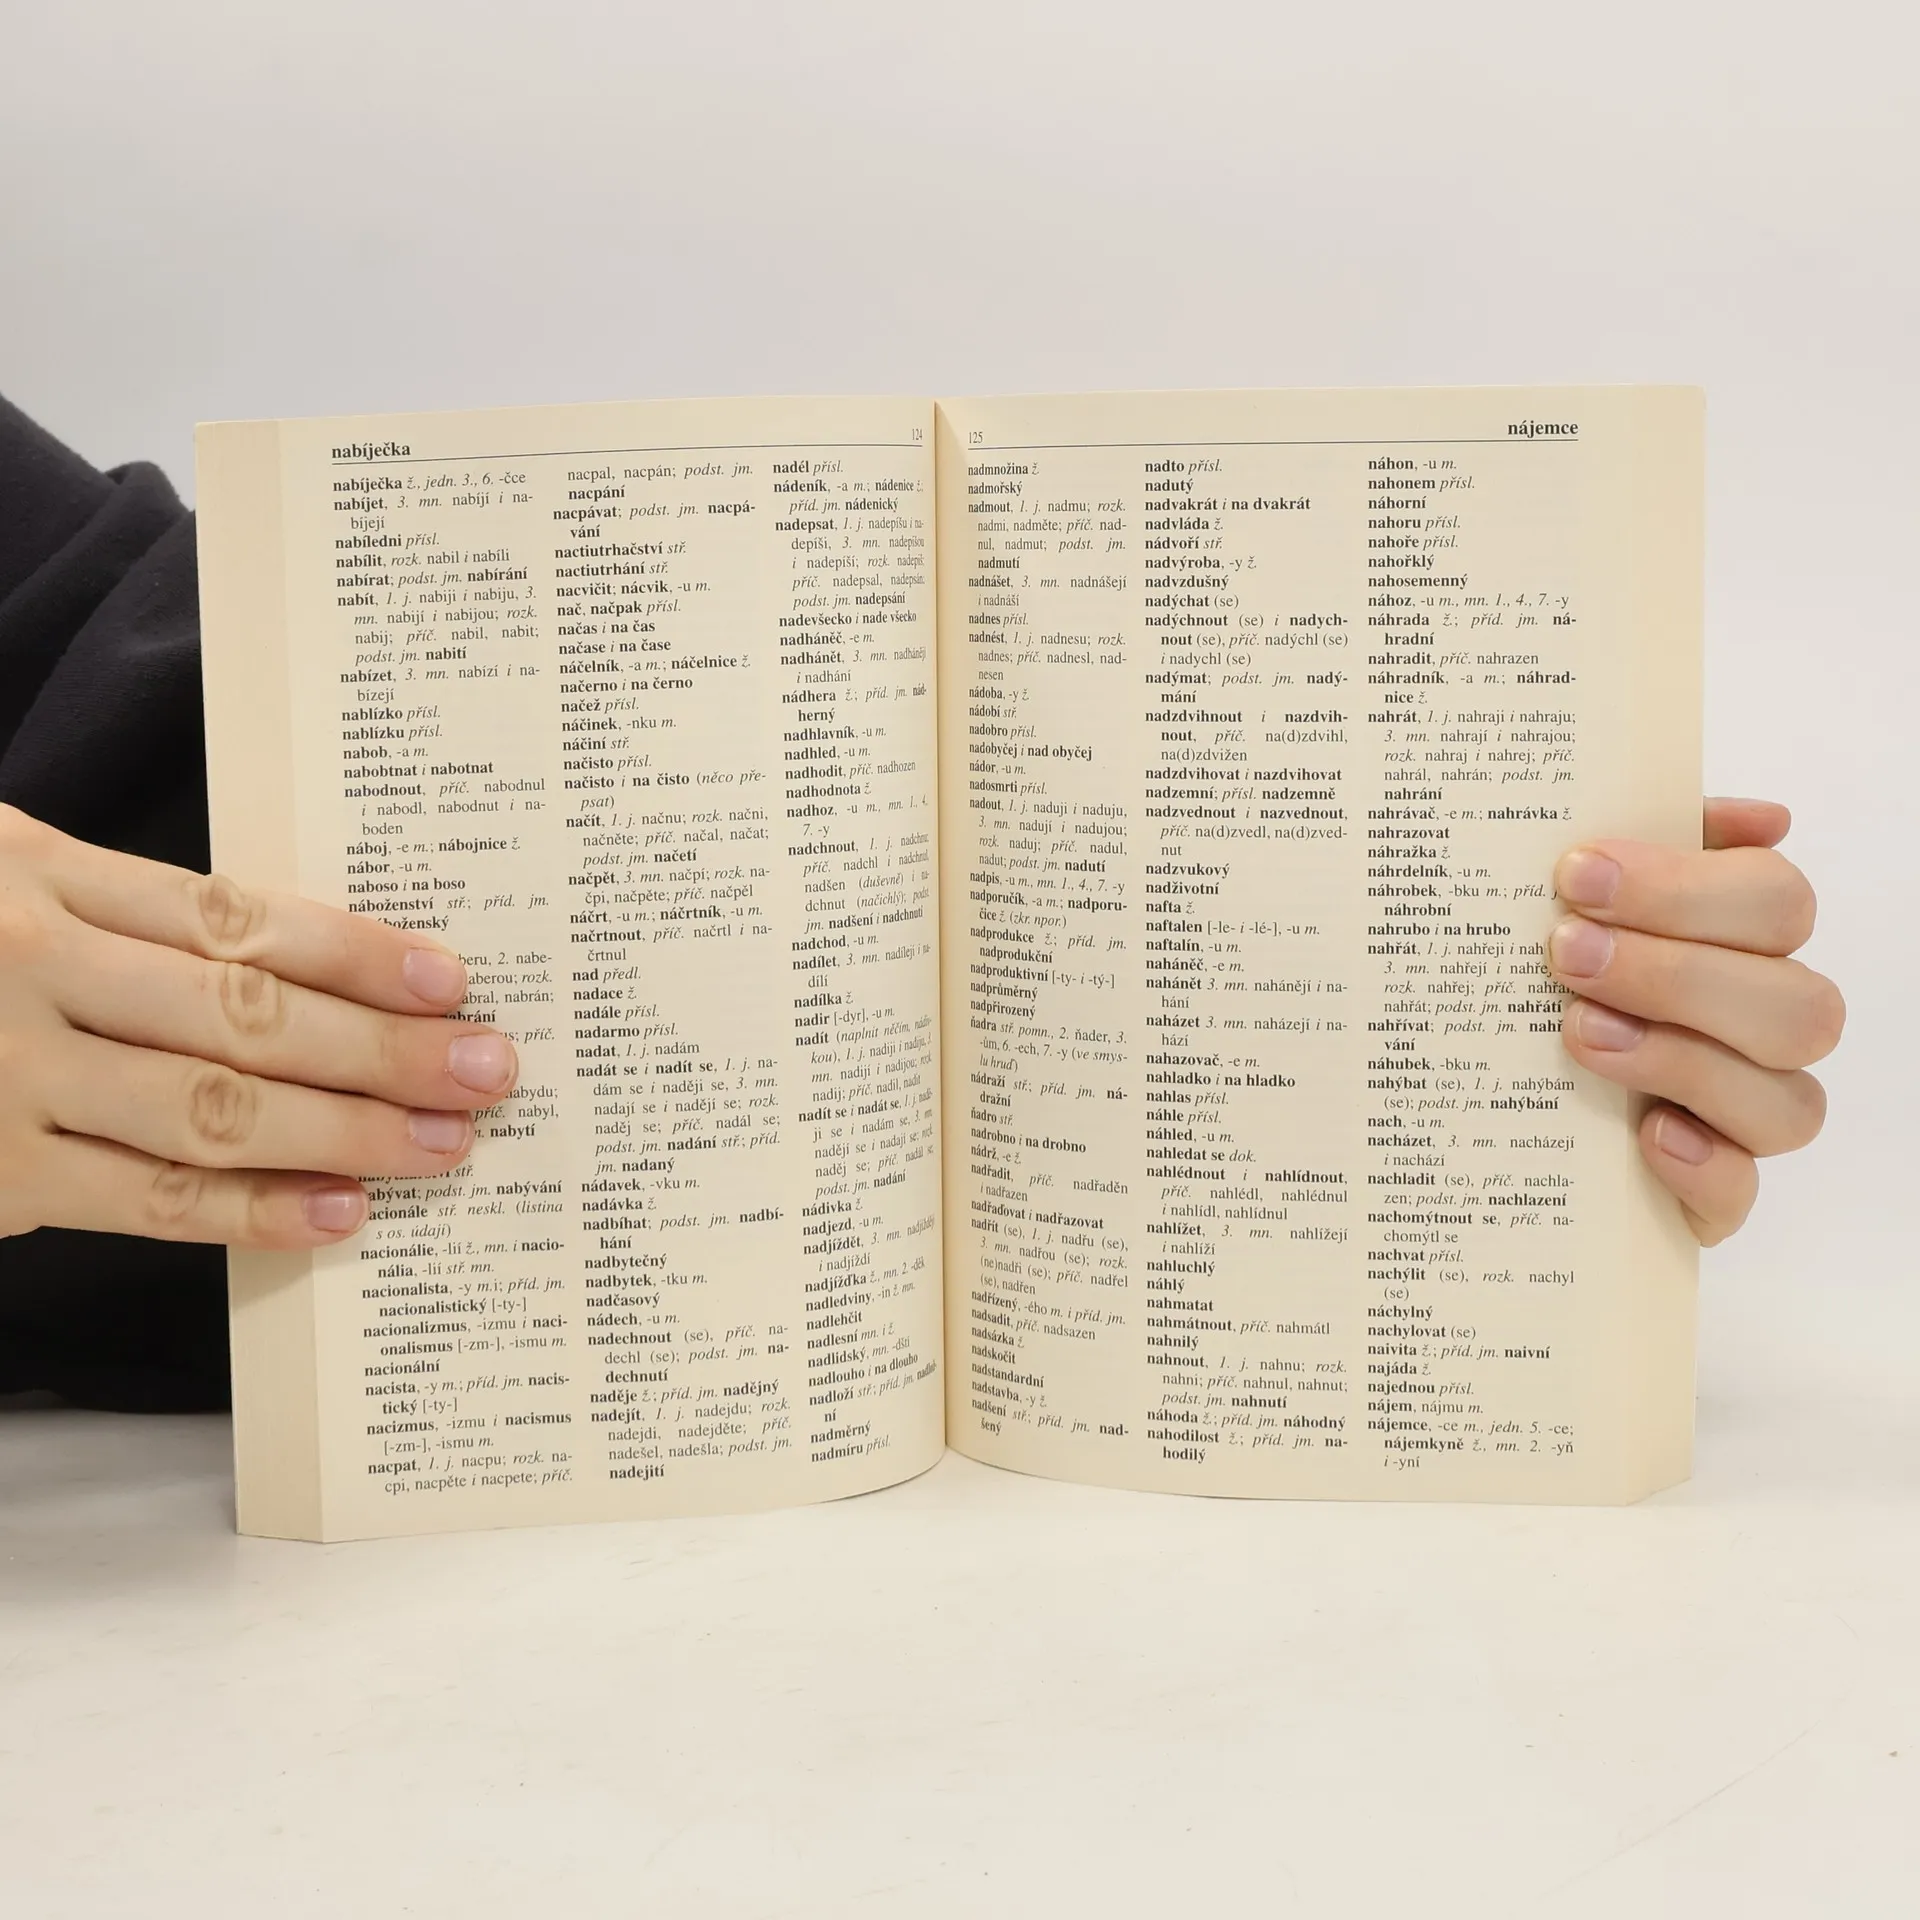 nabíječka
124
nabíječka ž., jedn. 3., 6. -čce
nabíjet, 3. mn. nabíjí i na-
bíjejí
nabíledni přísl.
nabílit, rozk. nabil i nabíli
nabírat; podst. jm. nabírání
nabít, 1. j. nabiji i nabiju, 3.
mn. nabijí i nabijou; rozk.
nabij; příč. nabil, nabit;
podst. jm. nabití
nabízet, 3. mn. nabízí i na-
bízejí
nablízko přísl.
nablízku přísl.
nabob, -a m.
nabobtnat i nabotnat
nabodnout, příč. nabodnul
i nabodl, nabodnut i na-
boden
náboj, -e m.; nábojnice ž.
nábor, -u m.
naboso i na boso
náboženství stř.; příd. jm.
beru, 2. nabe-
rozk.
nabrán;
příč.
příč. nabyl,
nabytí
stř.
podst. jm. nabývání
stř. neskl. (listina
s os. údaji)
nacionálie, -lií ž., mn. i nacio-
nália, -lií stř. mn.
nacionalista, -y m.; příd. jm.
nacionalistický [-ty-]
nacionalizmus, -izmu i naci-
onalismus [-zm-], -ismu m.
nacionální
nacista, -y m.; příd. jm. nacis-
tický [-ty-]
nacizmus, -izmu i nacismus
[-zm-], -ismu m.
nacpat, 1. j. nacpu; rozk. na-
cpi, nacpěte i nacpete; příč.
nacpal, nacpán; podst. jm.
nacpání
nacpávat; podst. jm. nacpá-
vání
nactiutrhačství stř.
nactiutrhání stř.
nacvičit; nácvik, -u m.
nač, načpak přísl.
načas i na čas
načase i na čase
náčelník, -a m.; náčelnice ž.
načerno i na černo
načež přísl.
náčinek, -nku m.
náčiní stř.
načisto přísl.
načisto i na čisto (něco pře-
psat)
načít, 1. j. načnu; rozk. načni,
načněte; příč. načal, načat;
podst. jm. načetí
načpět, 3. mn. načpí; rozk. na-
čpi, načpěte; příč. načpěl
náčrt, -u m.; náčrtník, -u m.
načrtnout, příč. načrtl i na-
črtnul
nad předl.
nadace ž.
nadále přísl.
nadarmo přísl.
nadat, 1. j. nadám
nadát se i nadít se, 1. j. na-
dám se i naději se, 3. mn.
nadají se i nadějí se; rozk.
naděj se; příč. nadál se;
podst. jm. nadání stř.; příd.
jm. nadaný
nádavek, -vku m.
nadávka ž.
nadbíhat; podst. jm. nadbí-
hání
nadbytečný
nadbytek, -tku m.
nadčasový
nádech, -u m.
nadechnout (se), příč. na-
dechl (se); podst. jm. na-
dechnutí
naděje ž.; příd. jm. nadějný
nadejít, 1. j. nadejdu; rozk.
nadejdi, nadejděte; příč.
nadešel, nadešla; podst. jm.
nadejití
nadél přísl.
nádeník, -a m.; nádenice ž.
příd. jm. nádenický
nadepsat, 1. j. nadepíšu i na-
depíši, 3. mn. nadepíšou
i nadepíší; rozk. nadepiš;
příč. nadepsal, nadepsán;
podst. jm. nadepsání
nadevšecko i nade všecko
nadháněč, -e m.
nadhánět, 3. mn. nadhánějí
i nadhání
nádhera ž.; příd. jm. nád-
herný
nadhlavník, -u m.
nadhled, -u m.
nadhodit, příč. nadhozen
nadhodnota ž.
nadhoz, -u m., mn. 1., 4.,
7. -y
nadchnout, 1. j. nadchnu;
příč. nadchl i nadchnul,
nadšen (duševně) i na-
dchnut (načichlý); podst.
jm. nadšení i nadchnutí
nadchod, -u m.
nadílet, 3. mn. nadílejí i na-
dílí
nadílka ž.
nadir [-dyr], -u m.
nadít (naplnit něčím, nádiv-
kou), 1. j. nadiji i nadiju, 3.
mn. nadijí i nadijou; rozk.
nadij; příč. nadil, nadit
nadít se i nadát se, 1. j. nadě-
ji se i nadám se, 3. mn.
nadějí se i nadají se; rozk.
naděj se; příč. nadál se;
podst. jm. nadání
nádivka ž.
nadjezd, -u m.
nadjíždět, 3. mn. nadjíždějí
i nadjíždí
nadjížďka ž., mn. 2. -děk
nadledviny, -in ž. mn.
nadlehčit
nadlesní mn. i ž.
nadlidský, mn. -dští
nadlouho i na dlouho
nadloží stř.; příd. jm. nadlož-
ní
nadměrný
nadmíru přísl.
125
nájemce
nadmnožina ž.
nadmořský
nadmout, 1. j. nadmu; rozk.
nadmi, nadměte; příč. nad-
nul, nadmut; podst. jm.
nadmutí
nadnášet, 3. mn. nadnášejí
i nadnáší
nadnes přísl.
nadnést, 1. j. nadnesu; rozk.
nadnes; příč. nadnesl, nad-
nesen
nádoba, -y ž.
nádobí stř.
nadobro přísl.
nadobyčej i nad obyčej
nádor, -u m.
nadosmrti přísl.
nadout, 1. j. naduji i naduju,
3. mn. nadují i nadujou;
rozk. naduj; příč. nadul,
nadut; podst. jm. nadutí
nadpis, -u m., mn. 1., 4., 7. -y
nadporučík, -a m.; nadporu-
čice ž. (zkr. npor.)
nadprodukce ž.; příd. jm.
nadprodukční
nadproduktivní [-ty- i -tý-]
nadprůměrný
nadpřirozený
ňadra stř. pomn., 2. ňader, 3.
-ům, 6. -ech, 7. -y (ve smys-
lu hruď)
nádraží stř.; příd. jm. ná-
dražní
ňadro stř.
nadrobno i na drobno
nádrž, -e ž.
nadřadit, příč. nadřaděn
i nadřazen
nadřaďovat i nadřazovat
nadřít (se), 1. j. nadřu (se),
3. mn. nadřou (se); rozk.
(ne)nadři (se); příč. nadřel
(se), nadřen
nadřízený, -ého m. i příd. jm.
nadsadit, příč. nadsazen
nadsázka ž.
nadskočit
nadstandardní
nadstavba, -y ž.
nadšení stř.; příd. jm. nad-
šený
nadto přísl.
nadutý
nadvakrát i na dvakrát
nadvláda ž.
nádvoří stř.
nadvýroba, -y ž.
nadvzdušný
nadýchat (se)
nadýchnout (se) i nadych-
nout (se), příč. nadýchl (se)
i nadychl (se)
nadýmat; podst. jm. nadý-
mání
nadzdvihnout i nazdvih-
nout, příč. na(d)zdvihl,
na(d)zdvižen
nadzdvihovat i nazdvihovat
nadzemní; přísl. nadzemně
nadzvednout i nazvednout,
příč. na(d)zvedl, na(d)zved-
nut
nadzvukový
nadživotní
nafta ž.
naftalen [-le- i -lé-], -u m.
naftalín, -u m.
naháněč, -e m.
nahánět 3. mn. nahánějí i na-
hání
naházet 3. mn. naházejí i na-
hází
nahazovač, -e m.
nahladko i na hladko
nahlas přísl.
náhle přísl.
náhled, -u m.
nahledat se dok.
nahlédnout i nahlídnout,
příč. nahlédl, nahlédnul
i nahlídl, nahlídnul
nahlížet, 3. mn. nahlížejí
i nahlíží
nahluchlý
náhlý
nahmatat
nahmátnout, příč. nahmátl
nahnilý
nahnout, 1. j. nahnu; rozk.
nahni; příč. nahnul, nahnut;
podst. jm. nahnutí
náhoda ž.; příd. jm. náhodný
nahodilost ž.; příd. jm. na-
hodilý
náhon, -u m.
nahonem přísl.
náhorní
nahoru přísl.
nahoře přísl.
nahořklý
nahosemenný
nához, -u m., mn. 1., 4., 7. -y
náhrada ž.; příd. jm. ná-
hradní
nahradit, příč. nahrazen
náhradník, -a m.; náhrad-
nice ž.
nahrát, 1. j. nahraji i nahraju;
3. mn. nahrají i nahrajou;
rozk. nahraj i nahrej; příč.
nahrál, nahrán; podst. jm.
nahrání
nahrávač, -e m.; nahrávka ž.
nahrazovat
náhražka ž.
náhrdelník, -u m.
náhrobek, -bku m.; příd.
náhrobní
nahrubo i na hrubo
nahřát, 1. j. nahřeji i
3. mn. nahřejí i
rozk. nahřej; příč.
nahřát; podst. jm. nahřátí
nahřívat; podst. jm.
vání
náhubek, -bku m.
nahýbat (se), 1. j. nahýbám
(se); podst. jm. nahýbání
nach, -u m.
nacházet, 3. mn. nacházejí
i nachází
nachladit (se), příč. nachla-
zen; podst. jm. nachlazení
nachomýtnout se, příč. na-
chomýtl se
nachvat přísl.
nachýlit (se), rozk. nachyl
(se)
náchylný
nachylovat (se)
naivita ž.; příd. jm. naivní
najáda ž.
najednou přísl.
nájem, nájmu m.
nájemce, -ce m., jedn. 5. -ce;
nájemkyně ž., mn. 2. -yň
i -yní